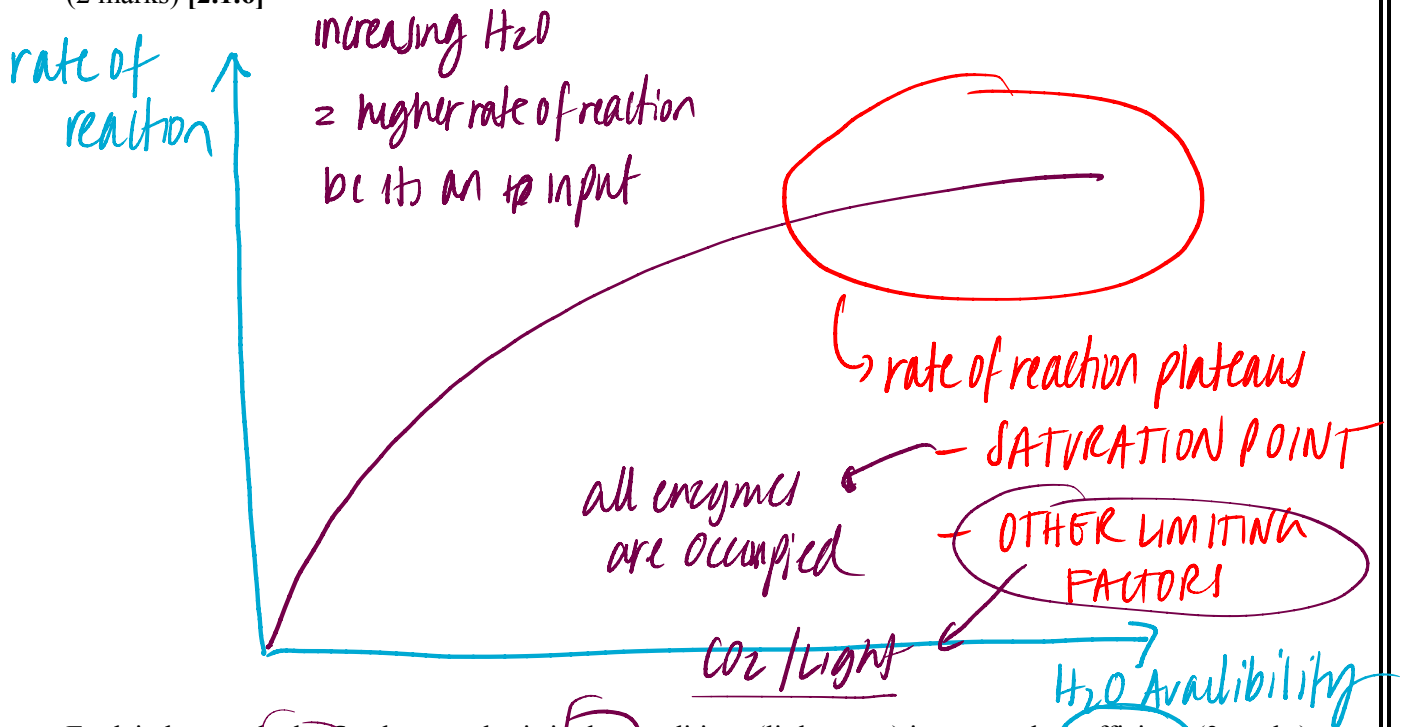 (2 marks) [2.1.6]
rate of
reaction
increasing H2O
= higher rate of reaction
bc its an input
rate of reaction plateaus
- SATURATION POINT
all enzymes
are occupied
- OTHER LIMITING
FACTORS
CO2/Light
H2O Availibility